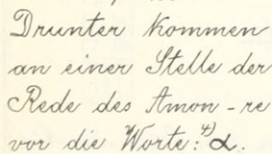 Drunter kommen
an einer Stelle der
Rede des Amon-re
vor die Worte: ⁴⁾ α.